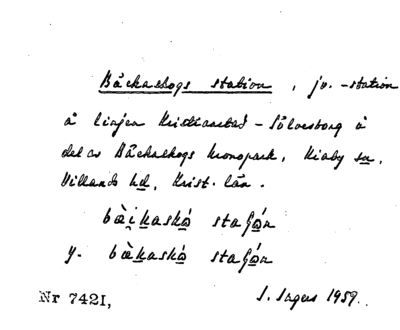 Bäckaskogs station, jv.-station
å linjen Kristianstad - Sölvesborg å
del av Bäckaskogs kronopark, Kiaby sn,
Villands hd, Krist. län.
bà̀i̯kaskó
y. bàkaskó
Nr 7421, 1959.